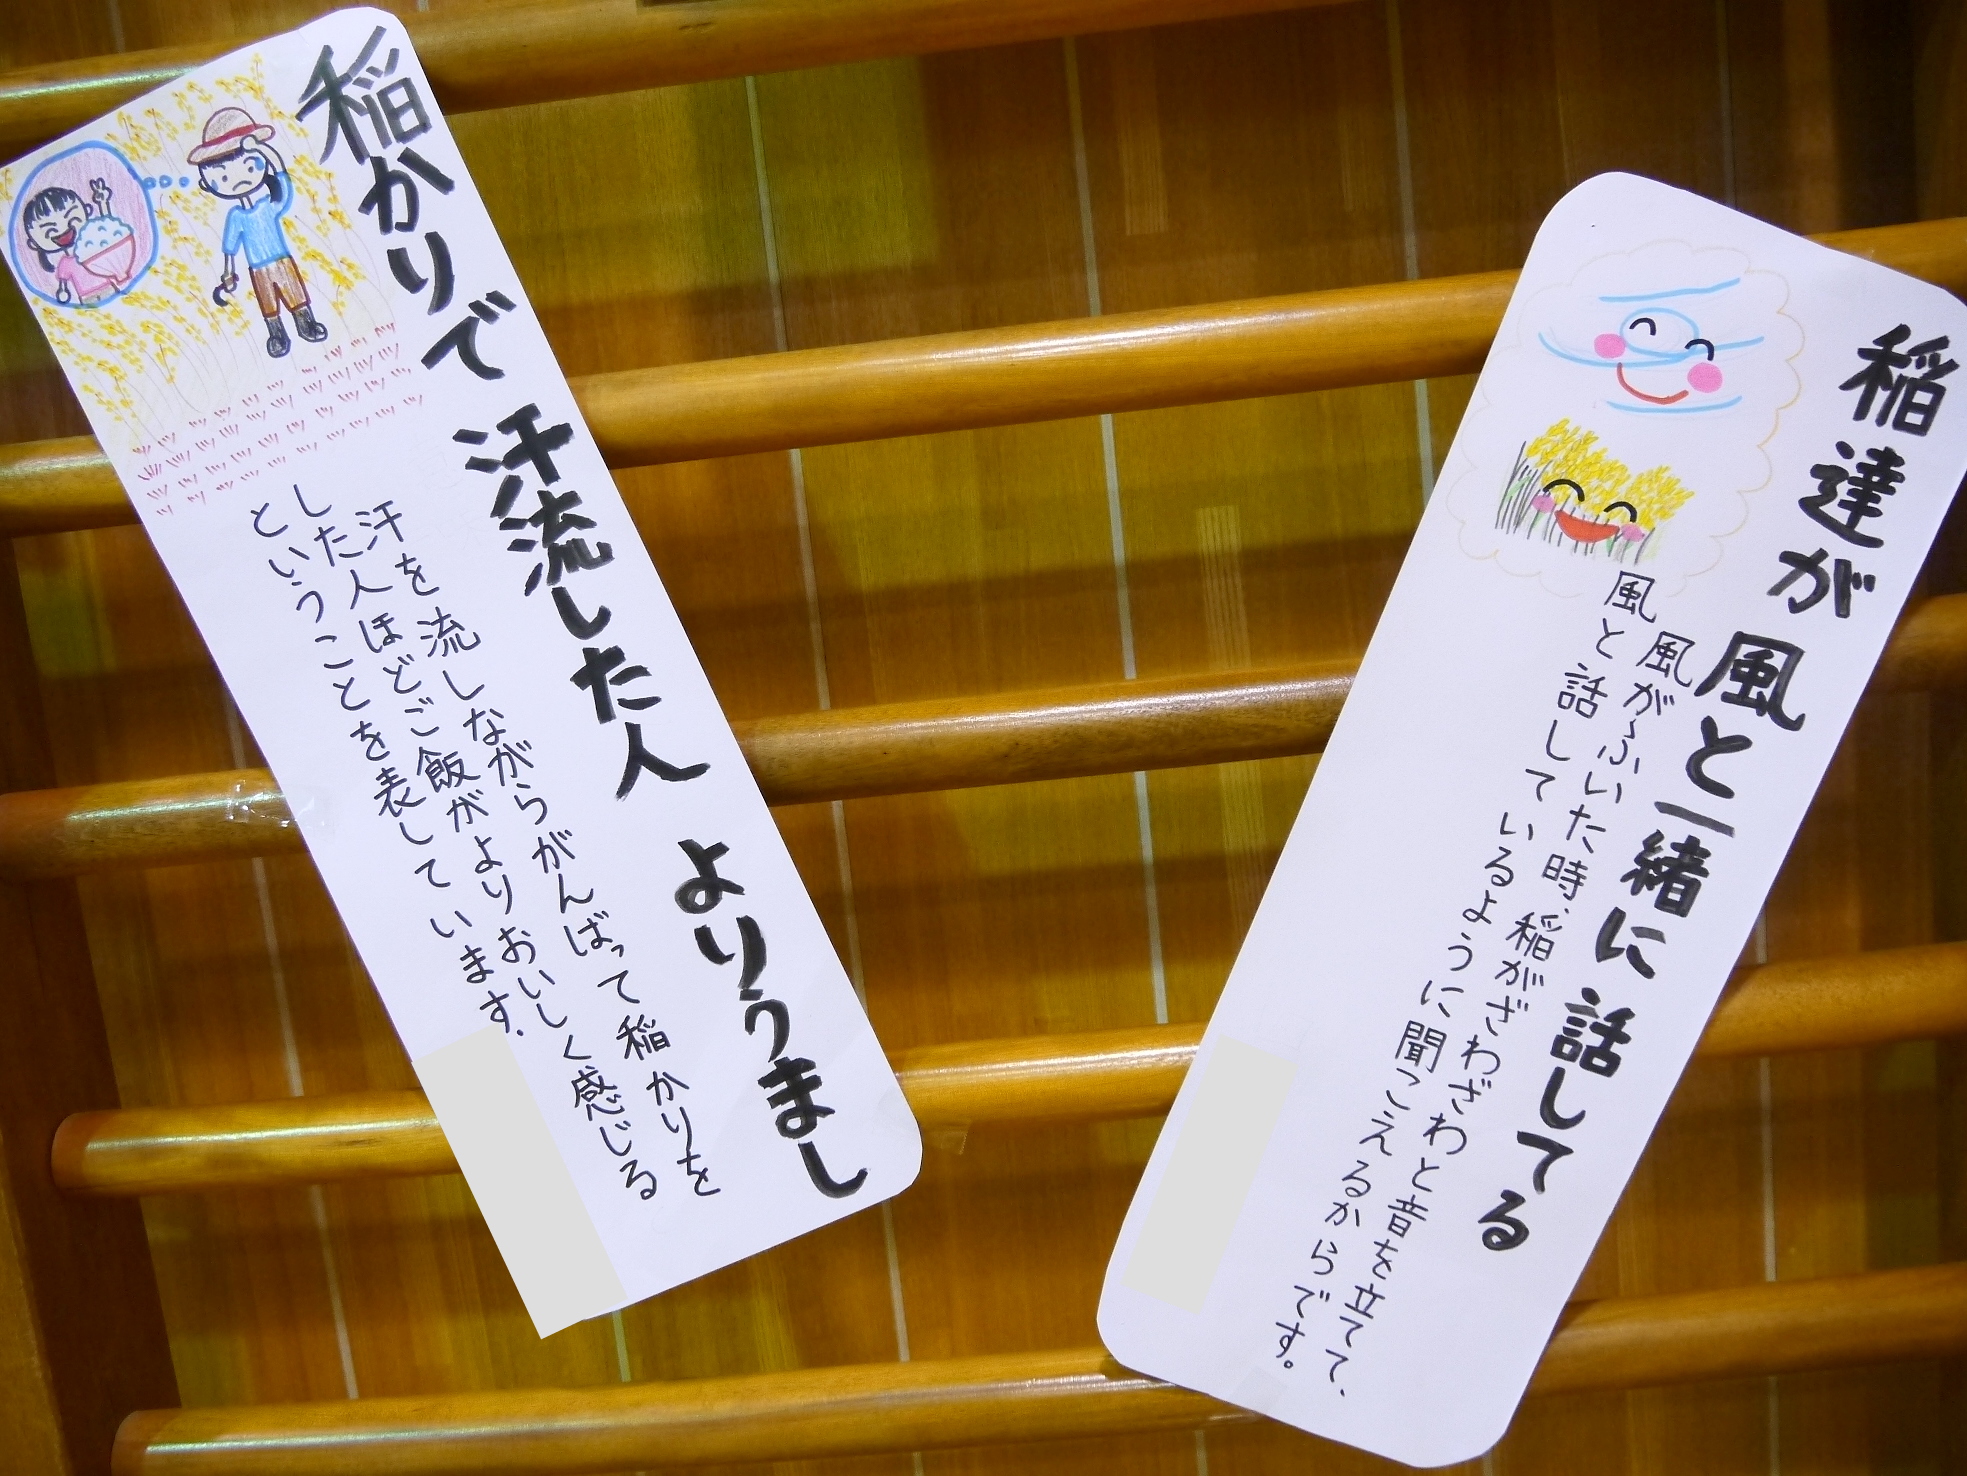 稲かりで 汗流した人 よりうまし
汗を流しながらがんばって稲かりを
した人ほどご飯がよりおいしく感じる
ということを表しています。
稲達が 風と一緒に 話してる
風がふいた時、稲がざわざわと音を立てて、
風と話しているように聞こえるからです。